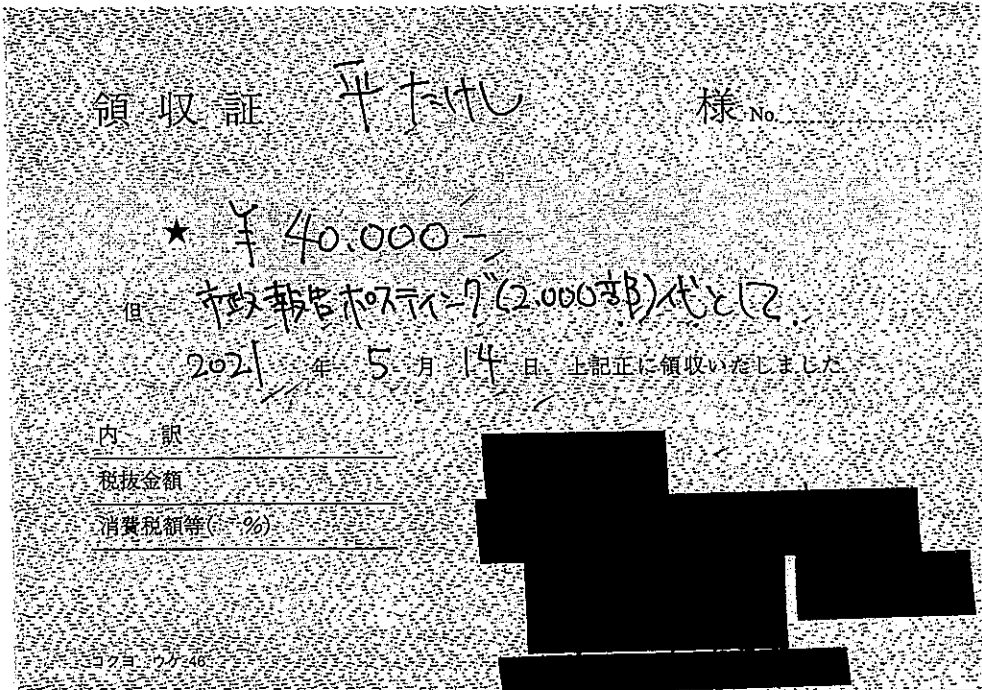 領収証 平たけし 様 No.
★ ¥40.000-
但 市政報告ポスティング(2.000部)代として
2021年5月14日 上記正に領収いたしました
内 訳
税抜金額
消費税額等( %)
コクヨ ウケ-46